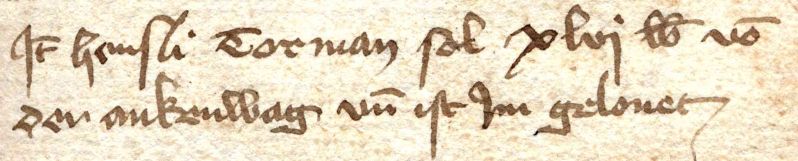 It heinsli Torman sol xlvj lb vō
der ankenwag vn̄ ist Im gelonet